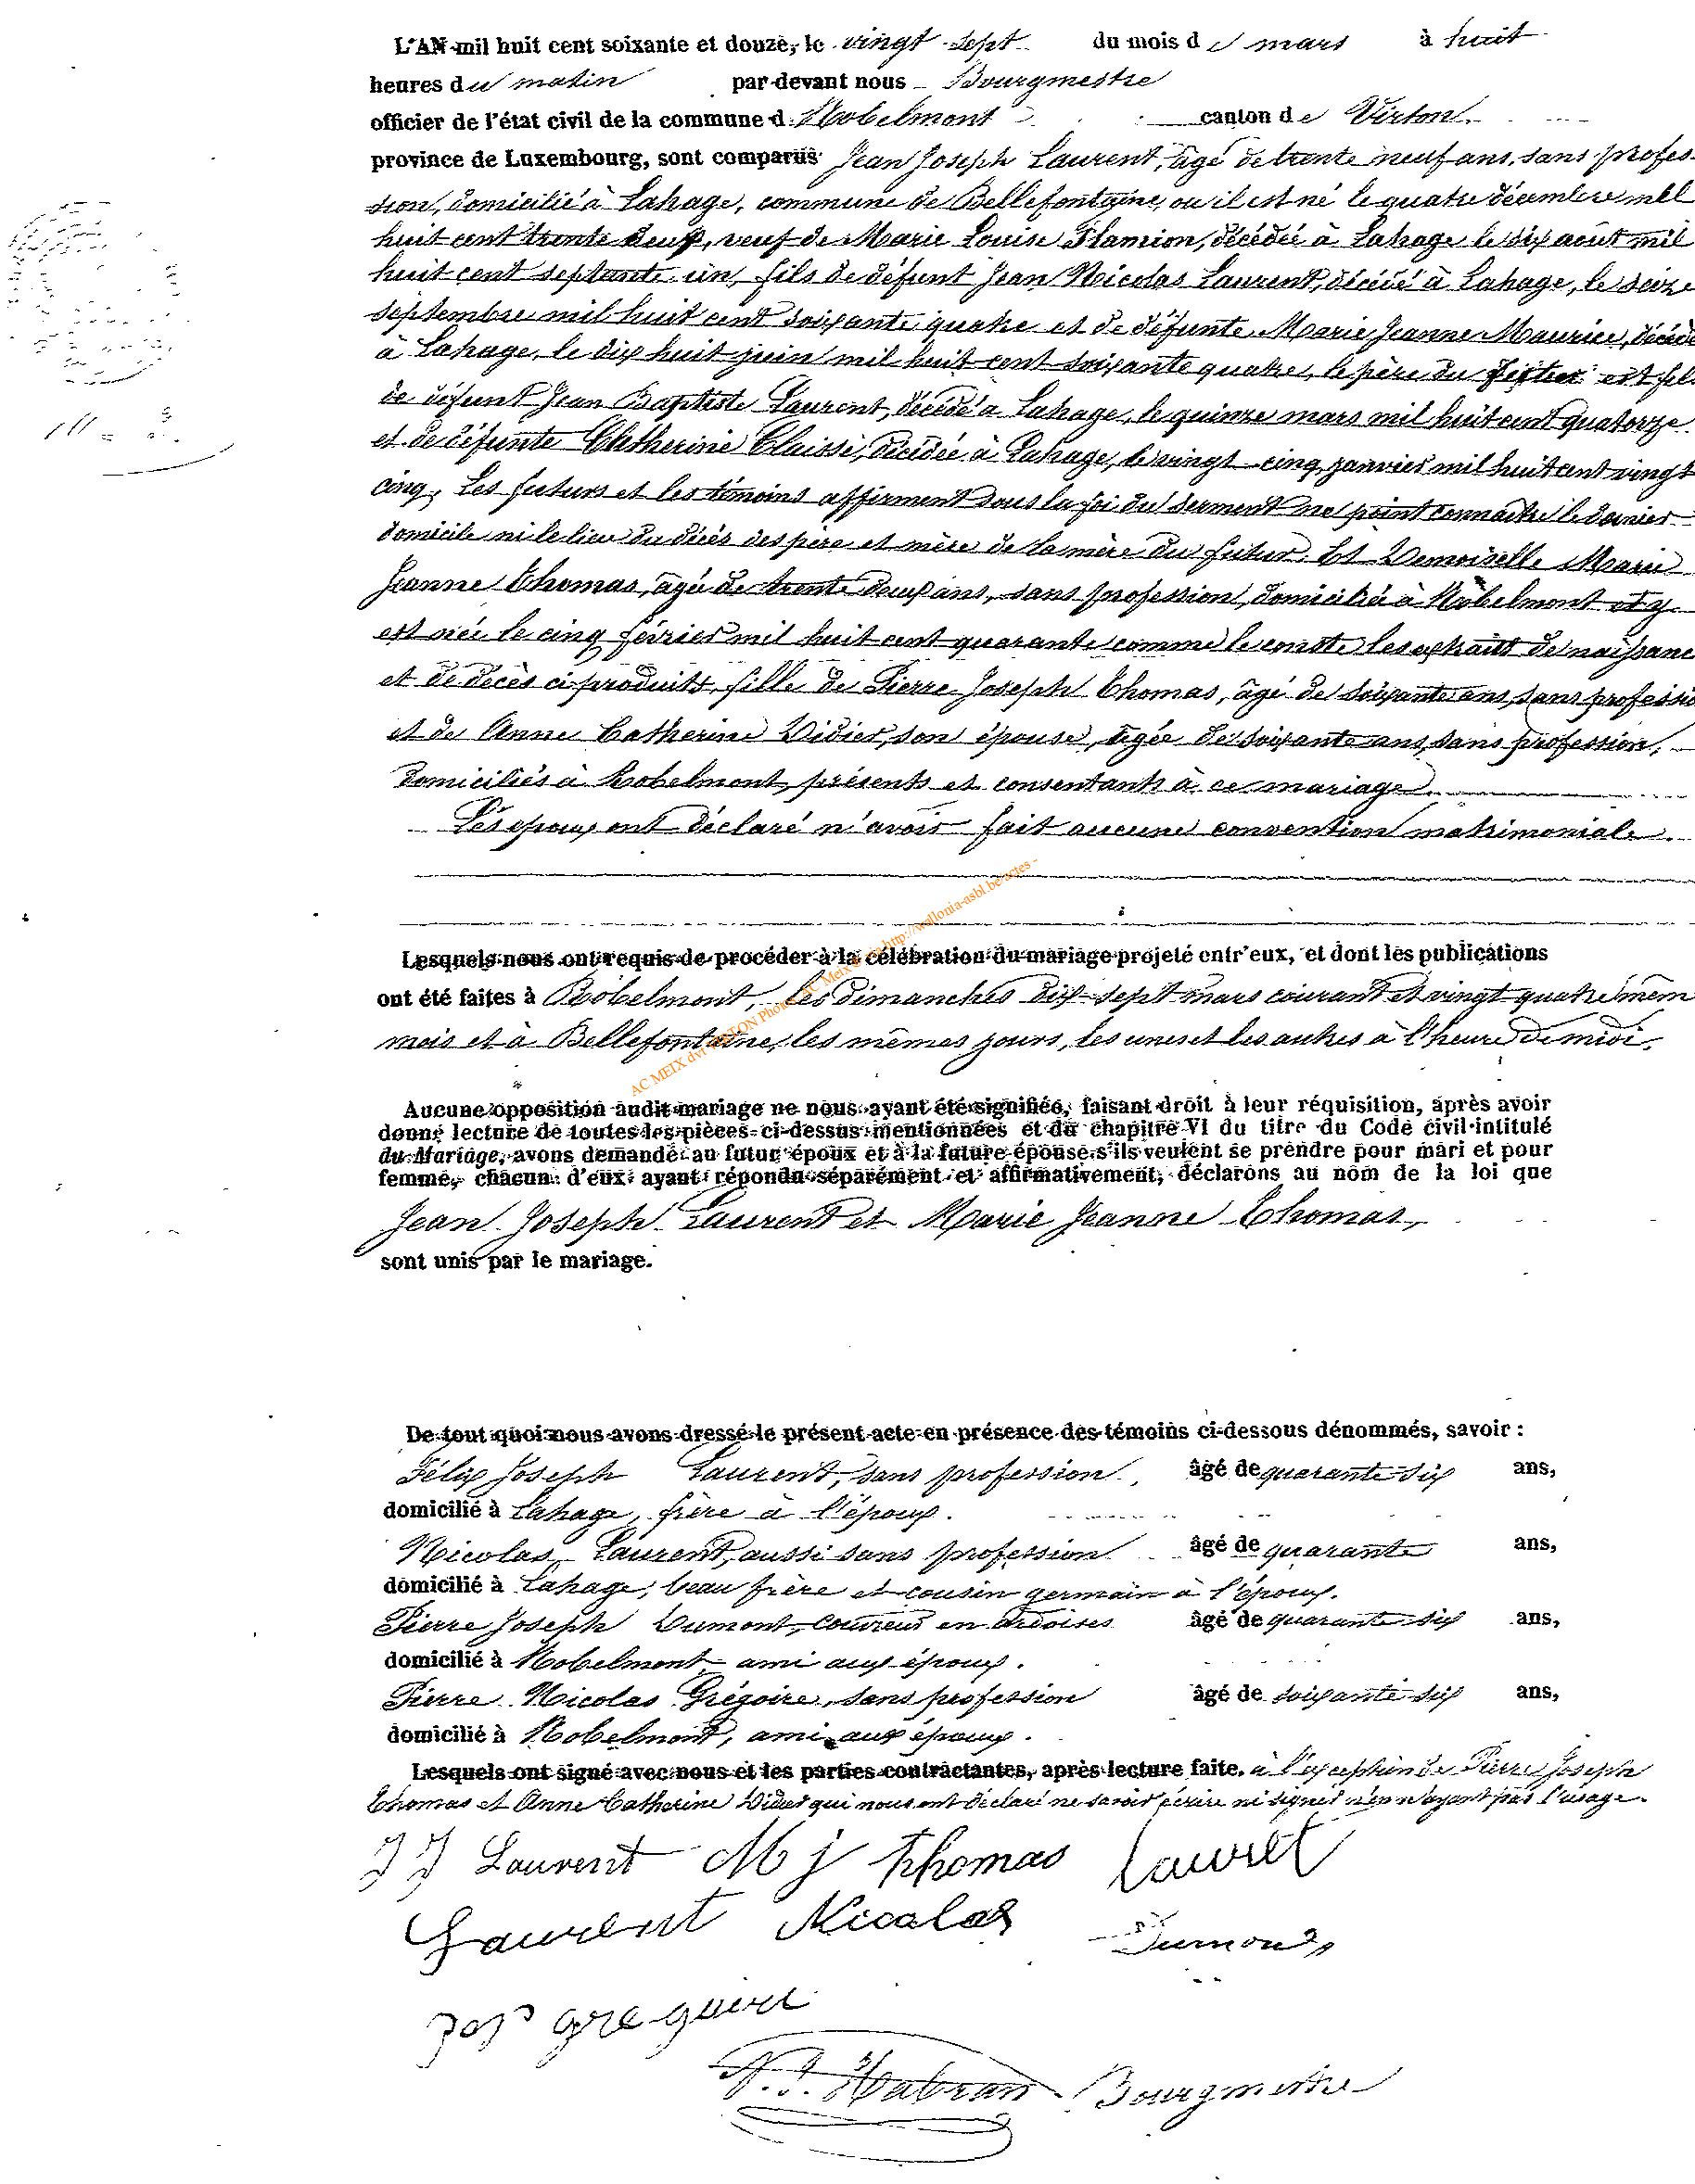 L'AN mil huit cent soixante et douze, le vingt sept du mois de mars à huit
heures du matin par-devant nous Bourgmestre
officier de l'état civil de la commune d. Robelmont canton de Virton
province de Luxembourg, sont comparus Jean Joseph Laurent, âgé de trente neuf ans, sans profes-
sion, domicilié à Lahage, commune de Bellefontaine, ou il est né le quatre décembre mil
huit cent trente deux, veuf de Marie Louise Flamion, décédée à Lahage le six août mil
huit cent septante un, fils de défunt Jean Nicolas Laurent, décédé à Lahage, le seize
septembre mil huit cent soixante quatre et de défunte Marie Jeanne Maurice, décédé
à Lahage, le dix huit juin mil huit cent soixante quatre, le père du futur est fils
de défunt Jean Baptiste Laurent, décédé à Lahage, le quinze mars mil huit cent quatorze
et de défunte Catherine Claisse, décédée à Lahage, le vingt cinq janvier mil huit cent vingt
cinq. Les futurs et les témoins affirment sous la foi du serment ne point connaitre le dernier
domicile ni le lieu du décès des père et mère de la mère du futur. Et Demoiselle Marie
Jeanne Thomas, âgée de trente deux ans, sans profession, domiciliée à Robelmont et y
est née le cinq février mil huit cent quarante comme le conste les extraits de naissanc
et de décès ci-produits, fille de Pierre Joseph Thomas, âgé de soixante ans, sans professio
et de Anne Catherine Didier, son épouse, âgée de soixante ans, sans profession,
domiciliés à Robelmont, présents et consentants à ce mariage.
Les époux ont déclaré n'avoir fait aucune convention matrimoniale.
Lesquels nous ont requis de procéder à la célébration du mariage projeté entr'eux, et dont les publications
ont été faites à Robelmont, les dimanches dix-sept mars courant et vingt quatre mêm
mois et à Bellefontaine, les mêmes jours, les unes et les autres à l'heure de midi.
AC MEIX dvt VIRTON Photo AC Meix http://wallonia-asbl.be actes -
Aucune opposition audit mariage ne nous ayant été signifiée, faisant droit à leur réquisition, après avoir
donné lecture de toutes les pièces ci-dessus mentionnées et du chapitre VI du titre du Code civil intitulé
du Mariage, avons demandé au futur époux et à la future épouse s'ils veulent se prendre pour mari et pour
femme, chacun d'eux ayant répondu séparément et affirmativement, déclarons au nom de la loi que
Jean Joseph Laurent et Marie Jeanne Thomas,
sont unis par le mariage.
De tout quoi nous avons dressé le présent acte en présence des témoins ci-dessous dénommés, savoir :
Félix Joseph Laurent, sans profession, âgé de quarante-six ans,
domicilié à Lahage, frère à l'époux.
Nicolas Laurent, aussi sans profession âgé de quarante ans,
domicilié à Lahage, beau frère et cousin germain à l'époux.
Pierre Joseph Dumont, couvreur en ardoises âgé de quarante-six ans,
domicilié à Robelmont ami aux époux.
Pierre Nicolas Grégoire, sans profession âgé de soixante-six ans,
domicilié à Robelmont, ami aux époux.
Lesquels ont signé avec nous et les parties contractantes, après lecture faite, à l'exception de Pierre Joseph
Thomas et Anne Catherine Didier qui nous ont déclaré ne savoir écrire ni signer n'en n'ayant pas l'usage.
J J Laurent M j Thomas Lauret
Laurent Nicolas Dumont
gregoire
Habran Bourgmestre